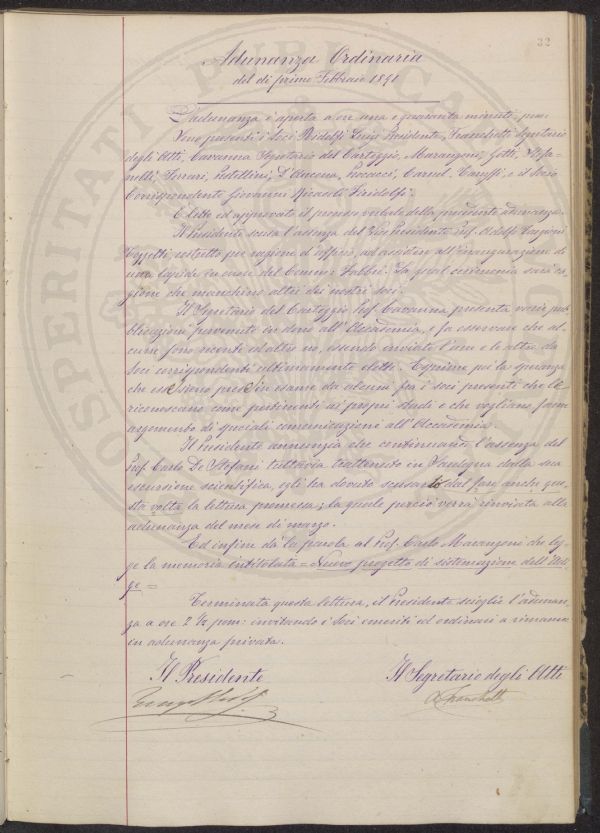 32
Adunanza Ordinaria
del dì primo Febbraio 1891
L'adunanza è aperta a ore una e quaranta minuti pom:
Sono presenti i Soci Ridolfi Luigi Presidente, Franchetti Segretario
degli Atti, Cavanna Segretario del Carteggio, Marangoni, Gotti, Stefa-
nelli, Ferrari, Pestellini, D'Ancona, Caruel, e il Socio
Corrispondente Giovanni Ricasoli Firidolfi.
È letto ed approvato il processo verbale della precedente adunanza.
Il Presidente scusa l'assenza del Vice Presidente Prof. Adolfo Targioni
Tozzetti, costretto per ragione d'ufficio, ad assistere all'inaugurazione di
una lapide in onore del Comm: Fabbri. La qual cerimonia sarà ca-
gione che manchino altri dei nostri soci.
Il Segretario del Carteggio Prof. Cavanna, presenta varie pub-
blicazioni pervenute in dono all'Accademia, e fa osservare che al-
cune sono recenti ed altre no, essendo inviate l'une e le altre da
soci corrispondenti ultimamente eletti. Esprime poi la speranza
che esse sieno prese in esame da alcuni fra i soci presenti che le
riconoscano come pertinenti ai propri studi e che vogliano farne
argomento di speciali comunicazioni all'Accademia.
Il Presidente annunzia che continuando l'assenza del
Prof. Carlo De Stefani tuttavia trattenuto in Sardegna dalla sua
escursione scientifica, egli ha dovuto scusarsi dal fare anche que-
sta volta la lettura promessa; la quale perciò verrà rinviata alla
adunanza del mese di marzo.
Ed infine dà la parola al Prof. Carlo Marangoni che leg-
ge la memoria intitolata = Nuovo progetto di sistemazione dell'Adi-
ge =
Terminata questa lettura, il Presidente scioglie l'adunan-
za a ore 2 ½ pom: invitando i Soci emeriti ed ordinari a rimanere
in adunanza privata.
Il Presidente Il Segretario degli Atti
A Franchetti